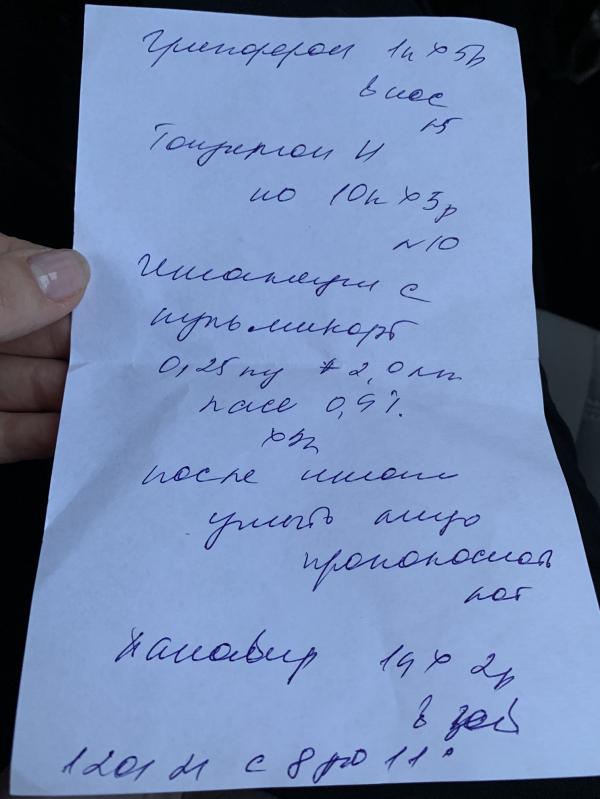 Гриппферон 1к х 5р
в нос
N5
Тонзилгон Н
по 10к х 3р
N10
Ингаляции с
пульмикорт
0,25 + 2,0 мл
NaCl 0,9%
после ингал
умыть лицо
прополоскать
рот
Панавир х 2р
в
12 01 21 с 8 до 11°